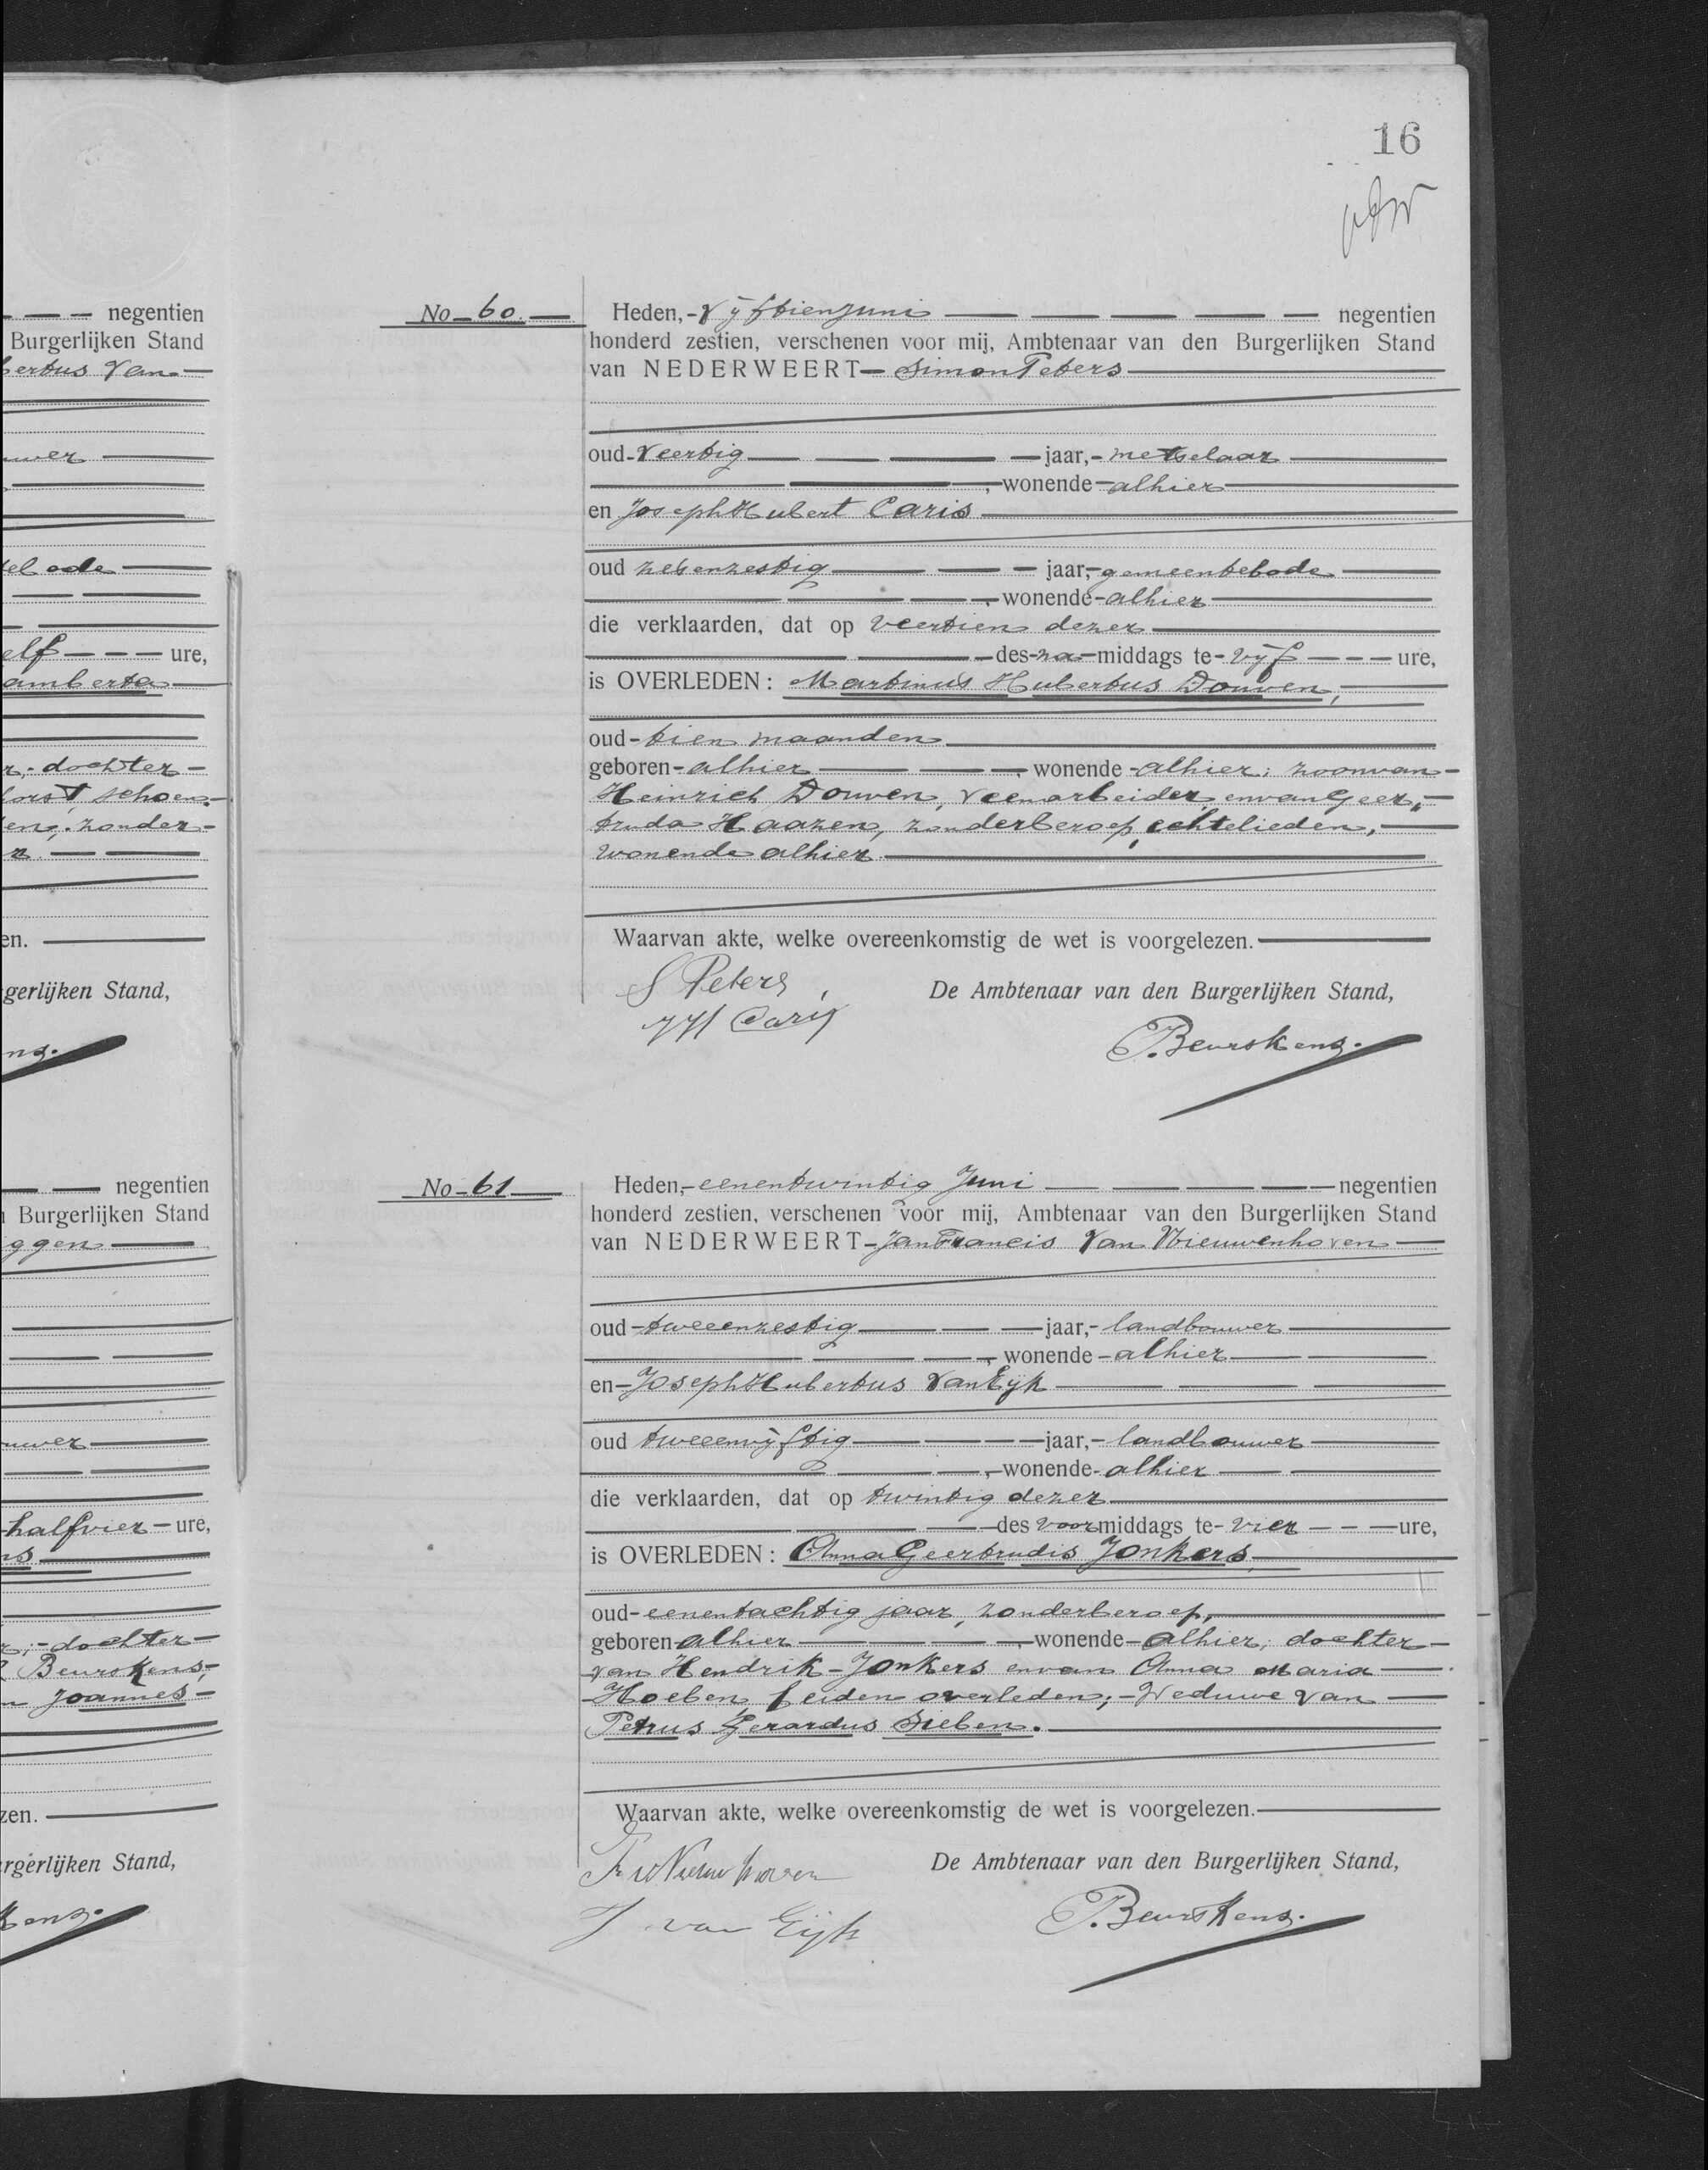 negentien
Burgerlijken Stand
bertus Van
uwer
bode
elf ure,
amberta
dochter
horst, schoen-
zonder-
en.
gerlijken Stand,
ns.
negentien
Burgerlijken Stand
ggen
uwer
halfvier ure,
ns
dochter
Beurskens,
Joannes
zen.
rgerlijken Stand,
kens.
16
No 60.
Heden, vijftien Juni negentien
honderd zestien, verschenen voor mij, Ambtenaar van den Burgerlijken Stand
van NEDERWEERT Simon Peters
oud veertig jaar, metselaar
, wonende alhier
en Joseph Hubert Caris
oud zebenzestig jaar, gemeentebode
, wonende alhier
die verklaarden, dat op veertien dezer
des na middags te vijf ure,
is OVERLEDEN: Martinus Hubertus Douven,
oud tien maanden
geboren alhier, wonende alhier; zoon van
Heinrich Douven, veenarbeider, en van Geer„
truda Haazen, zonder beroep, echtelieden,
wonende alhier
Waarvan akte, welke overeenkomstig de wet is voorgelezen.
S Peters
De Ambtenaar van den Burgerlijken Stand,
JH Carij
P. Beurskens.
No 61
Heden, eenentwintig Juni negentien
honderd zestien, verschenen voor mij, Ambtenaar van den Burgerlijken Stand
van NEDERWEERT Jan Francis Van Nieuwenhoven
oud tweeenzestig jaar, landbouwer
, wonende alhier
en Joseph Hubertus Van Eijk
oud tweeenvijftig jaar, landbouwer
, wonende alhier
die verklaarden, dat op twintig dezer
des voor middags te vier ure,
is OVERLEDEN: Anna Geertrudis Jonkers,
oud eenentachtig jaar, zonder beroep,
geboren alhier, wonende alhier; dochter
van Hendrik Jonkers en van Anna Maria
Hoeben, beiden overleden; Weduwe van
Petrus Gerardus Sieben.
Waarvan akte, welke overeenkomstig de wet is voorgelezen.
De Ambtenaar van den Burgerlijken Stand,
J van Eijk
P. Beurskens.